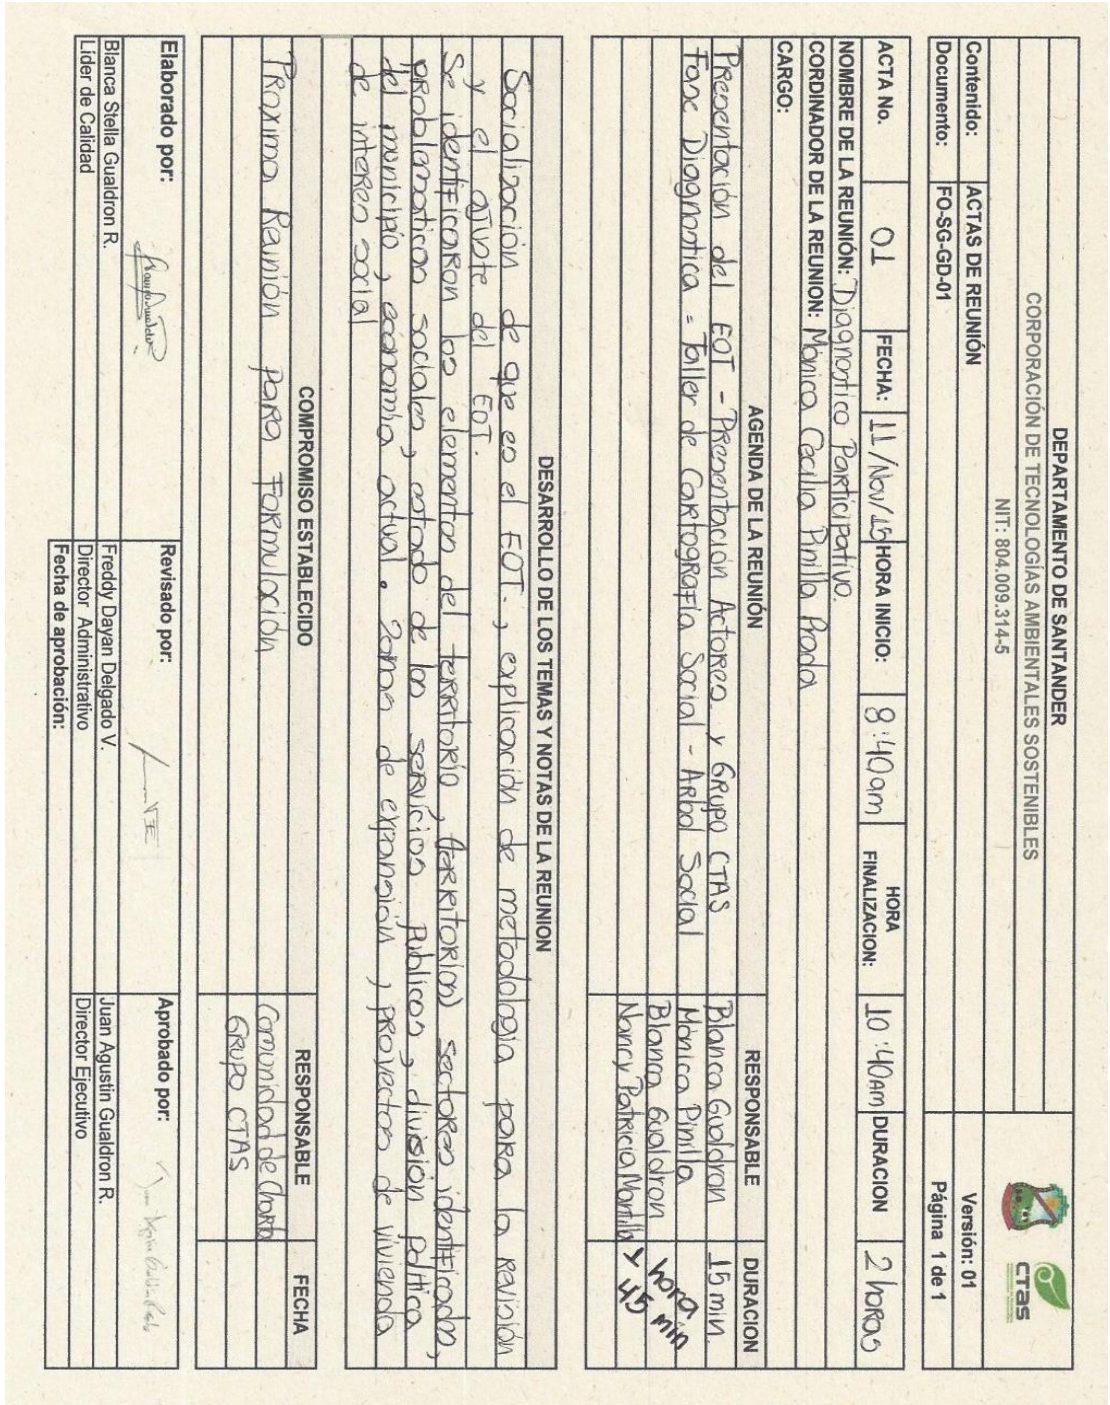 DEPARTAMENTO DE SANTANDER
CORPORACIÓN DE TECNOLOGÍAS AMBIENTALES SOSTENIBLES
NIT: 804.009.314-5
CTas
Contenido: ACTAS DE REUNIÓN Versión: 01
Documento: FO-SG-GD-01 Página 1 de 1
ACTA No. 01 FECHA: 11/Nov/15 HORA INICIO: 8:40am HORA FINALIZACION: 10:40am DURACION 2 horas
NOMBRE DE LA REUNIÓN: Diagnostico Participativo.
CORDINADOR DE LA REUNION: Mónica Cecilia Pinilla Prada
CARGO:
AGENDA DE LA REUNIÓN RESPONSABLE DURACION
Presentación del EOT - Presentación Actores y Grupo CTAS Blanca Gualdron 15 min.
Fase Diagnostica = Taller de Cartografía Social - Arbol Social Mónica Pinilla hora
Blanca Gualdron y 45 min
Nancy Patricia Mantilla
DESARROLLO DE LOS TEMAS Y NOTAS DE LA REUNION
Socialización de que es el EOT., explicación de metodología para la revisión
y el ajuste del EOT.
Se identificaron los elementos del territorio, (territorios) sectores identificados,
problematicas sociales, estado de los servicios publicos, división politica
del municipio, economia actual. Zonas de expansión, proyectos de vivienda
de interes social
COMPROMISO ESTABLECIDO RESPONSABLE FECHA
Proxima Reunión para Formulación Comunidad de Charta
Grupo CTAS
Elaborado por: Revisado por: Aprobado por:
Blanca Stella Gualdron R. Freddy Dayan Delgado V. Juan Agustin Gualdron R.
Lider de Calidad Director Administrativo Director Ejecutivo
Fecha de aprobación: